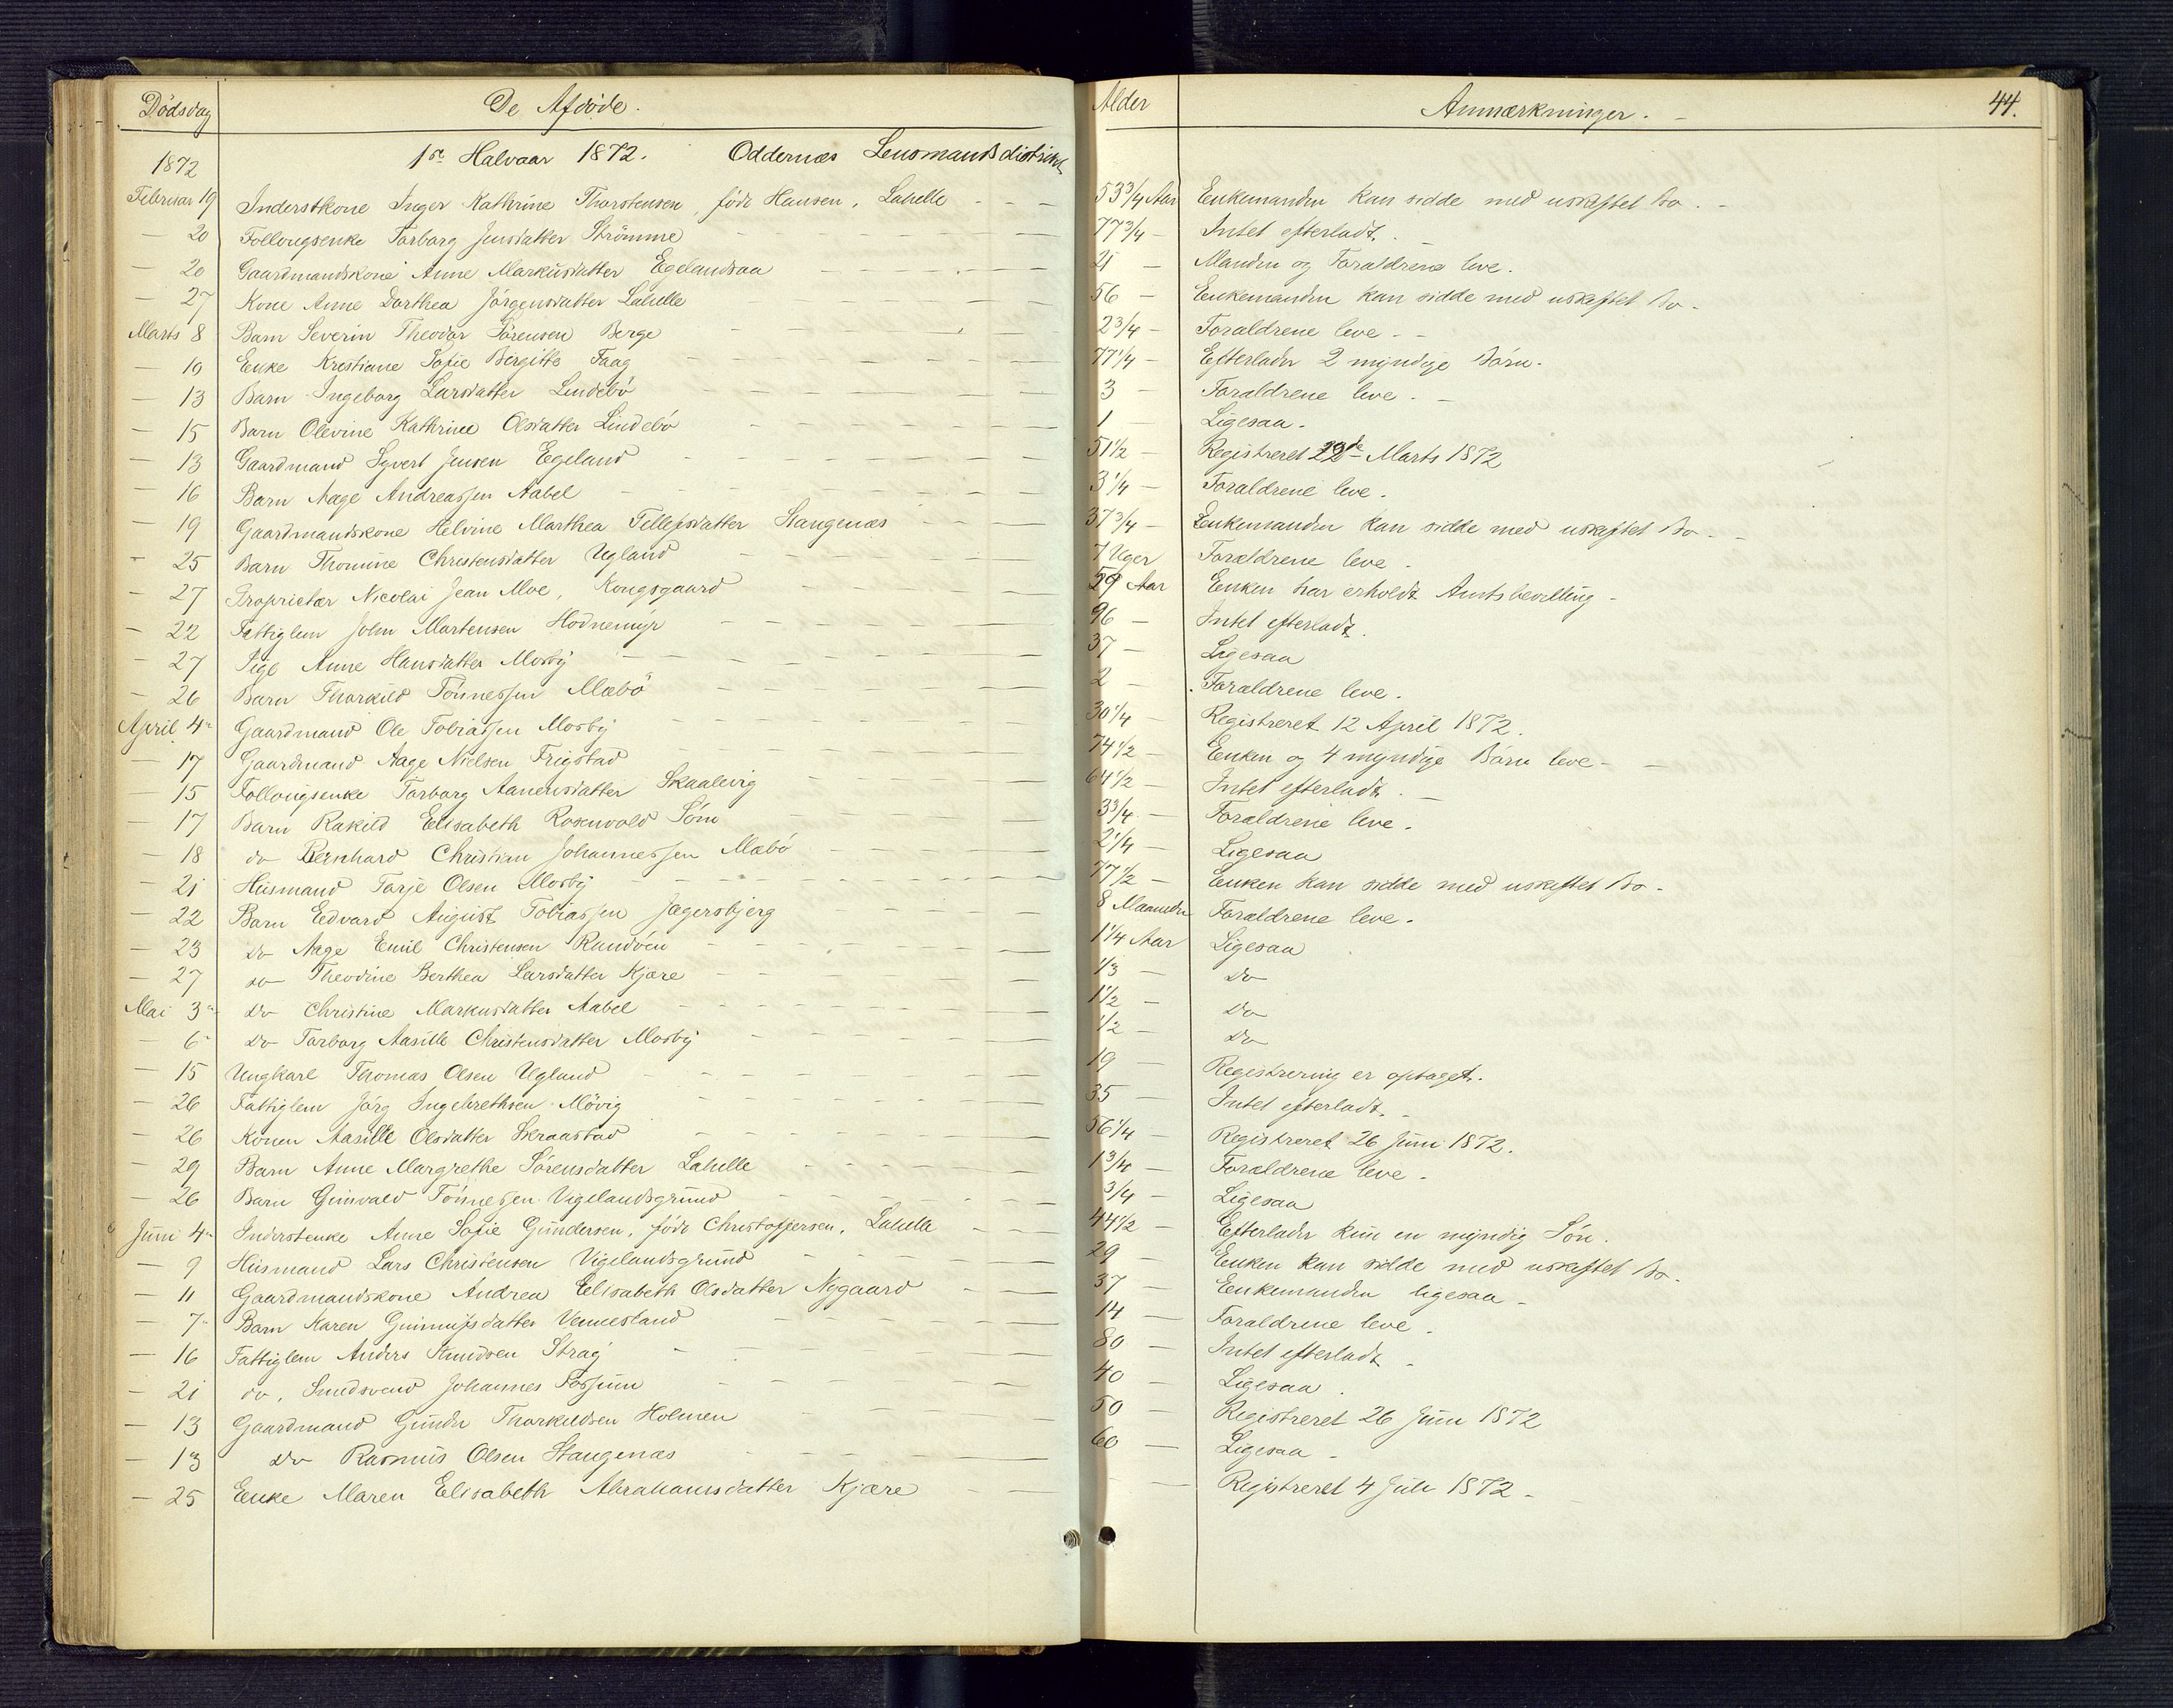 Dödsdag | De Afdøde. | Alder | Anmærkninger. | 44.
1872 | 1ste Halvaar 1872. Oddernæs Lensmandsdistrikt
Februar 19 | Inderstkone Inger Kathrine Thorstensen, føde Hansen, Lahelle | 53 3/4 Aar | Enkemanden kan sidde med uskiftet Bo.
— 20 | Follougsenke Torborg Jensdatter Strömme | 77 3/4 — | Intet efterladt.
— 20 | Gaardmandskone Anne Markusdatter Egelandsaa | 21 — | Manden og Forældrene leve.
— 27 | Kone Anne Dorthea Jörgensdatter Lahelle | 56 — | Enkemanden kan sidde med uskiftet Bo.
Marts 8 | Barn Severin Theodor Sörensen Berge | 2 3/4 — | Forældrene leve.
— 10 | Enke Kristiane Sofie Bergitte Faag | 77 1/4 — | Efterlader 2 myndige Börn.
— 13 | Barn Ingeborg Larsdatter Lindebö | 3 — | Forældrene leve.
— 15 | Barn Olevine Kathrine Olsdatter Lindebö | 1 | Ligesaa.
— 13 | Gaardmand Syvert Jensen Egeland | 51 1/2 — | Registreret Marts 1872
— 16 | Barn Aage Andreassen Aabel | 3 1/4 — | Forældrene leve.
— 19 | Gaardmandskone Helvine Marthea Tellefsdatter Stangenæs | 37 3/4 — | Enkemanden kan sidde med uskiftet Bo.
— 25 | Barn Thomine Christensdatter Ugland | 7 Uger | Forældrene leve.
— 27 | Proprietær Nicolai Jean Moe, Kongsgaard | 59 Aar | Enken har erholdt Amtsbevilling.
— 22 | Fattiglem John Martensen Hodnemyr | 96 — | Intet efterladt.
— 27 | Pige Anne Hansdatter Mosby | 37 — | Ligesaa
— 26 | Barn Thorkild Tönnessen Mæbö | 2 — | Forældrene leve.
April 4 | Gaardmand Ole Tobiassen Mosby | 30 1/4 — | Registreret 12 April 1872.
— 17 | Gaardmand Aage Nielsen Frigstad | 74 1/2 — | Enken og 4 myndige Börn leve.
— 15 | Follougsenke Torborg Aanensdatter Skaalevig | 64 1/2 — | Intet efterladt.
— 17 | Barn Rakild Elisabeth Rosenvold Söm | 3 3/4 — | Forældrene leve.
— 18 | do Bernhard Christian Johannessen Mæbö | 2 1/4 — | Ligesaa
— 21 | Husmand Tarje Olsen Mosby | 77 1/2 — | Enken kan sidde med uskiftet Bo.
— 22 | Barn Edvard August Tobiassen Jægersbjerg | 8 Maaneder | Forældrene leve.
— 23 | do Aage Emil Christensen Randöen | 1 1/4 Aar | Ligesaa
— 27 | do Theodine Berthea Larsdatter Kjære | 1/3 — | do
Mai 3 | do Christine Markusdatter Aabel | 1 1/2 — | do
— 6 | do Torborg Aasille Christensdatter Mosby | 1/2 — | do
— 15 | Ungkarl Thomas Olsen Ugland | 19 — | Registrering er optaget.
— 26 | Fattiglem Jörg Ingebrethsen Mövig | 35 — | Intet efterladt.
— 26 | Konen Aasille Olsdatter Skraastad | 56 1/4 — | Registreret 26 Juni 1872.
— 29 | Barn Anne Margrethe Sörensdatter Lahelle | 1 3/4 — | Forældrene leve.
— 26 | Barn Gunvald Tönnessen Vigelandsgrund | 3/4 — | Ligesaa
Juni 4 | Inderstenke Anne Sofie Gundersen, føde Christoffersen, Lahelle | 44 1/2 — | Efterlader kun en myndig Sön.
— 9 | Husmand Lars Christensen Vigelandsgrund | 29 — | Enken kan sidde med uskiftet Bo.
— 11 | Gaardmandskone Andrea Elisabeth Olsdatter Nygaard | 37 — | Enkemanden ligesaa
— 7 | Barn Karen Gunnufsdatter Vennesland | 14 — | Forældrene leve.
— 16 | Fattiglem Anders Knudsen Strag | 80 — | Intet efterladt
— 21 | do, Smedsvend Johannes Fossum | 40 — | Ligesaa.
— 13 | Gaardmand Gunder Thorkildsen Holmen | 50 — | Registreret 26 Juni 1872
— 13 | do Rasmus Olsen Stangenæs | 60 — | Ligesaa
— 25 | Enke Maren Elisabeth Abrahamsdatter Kjære | — | Registreret 4 Juli 1872